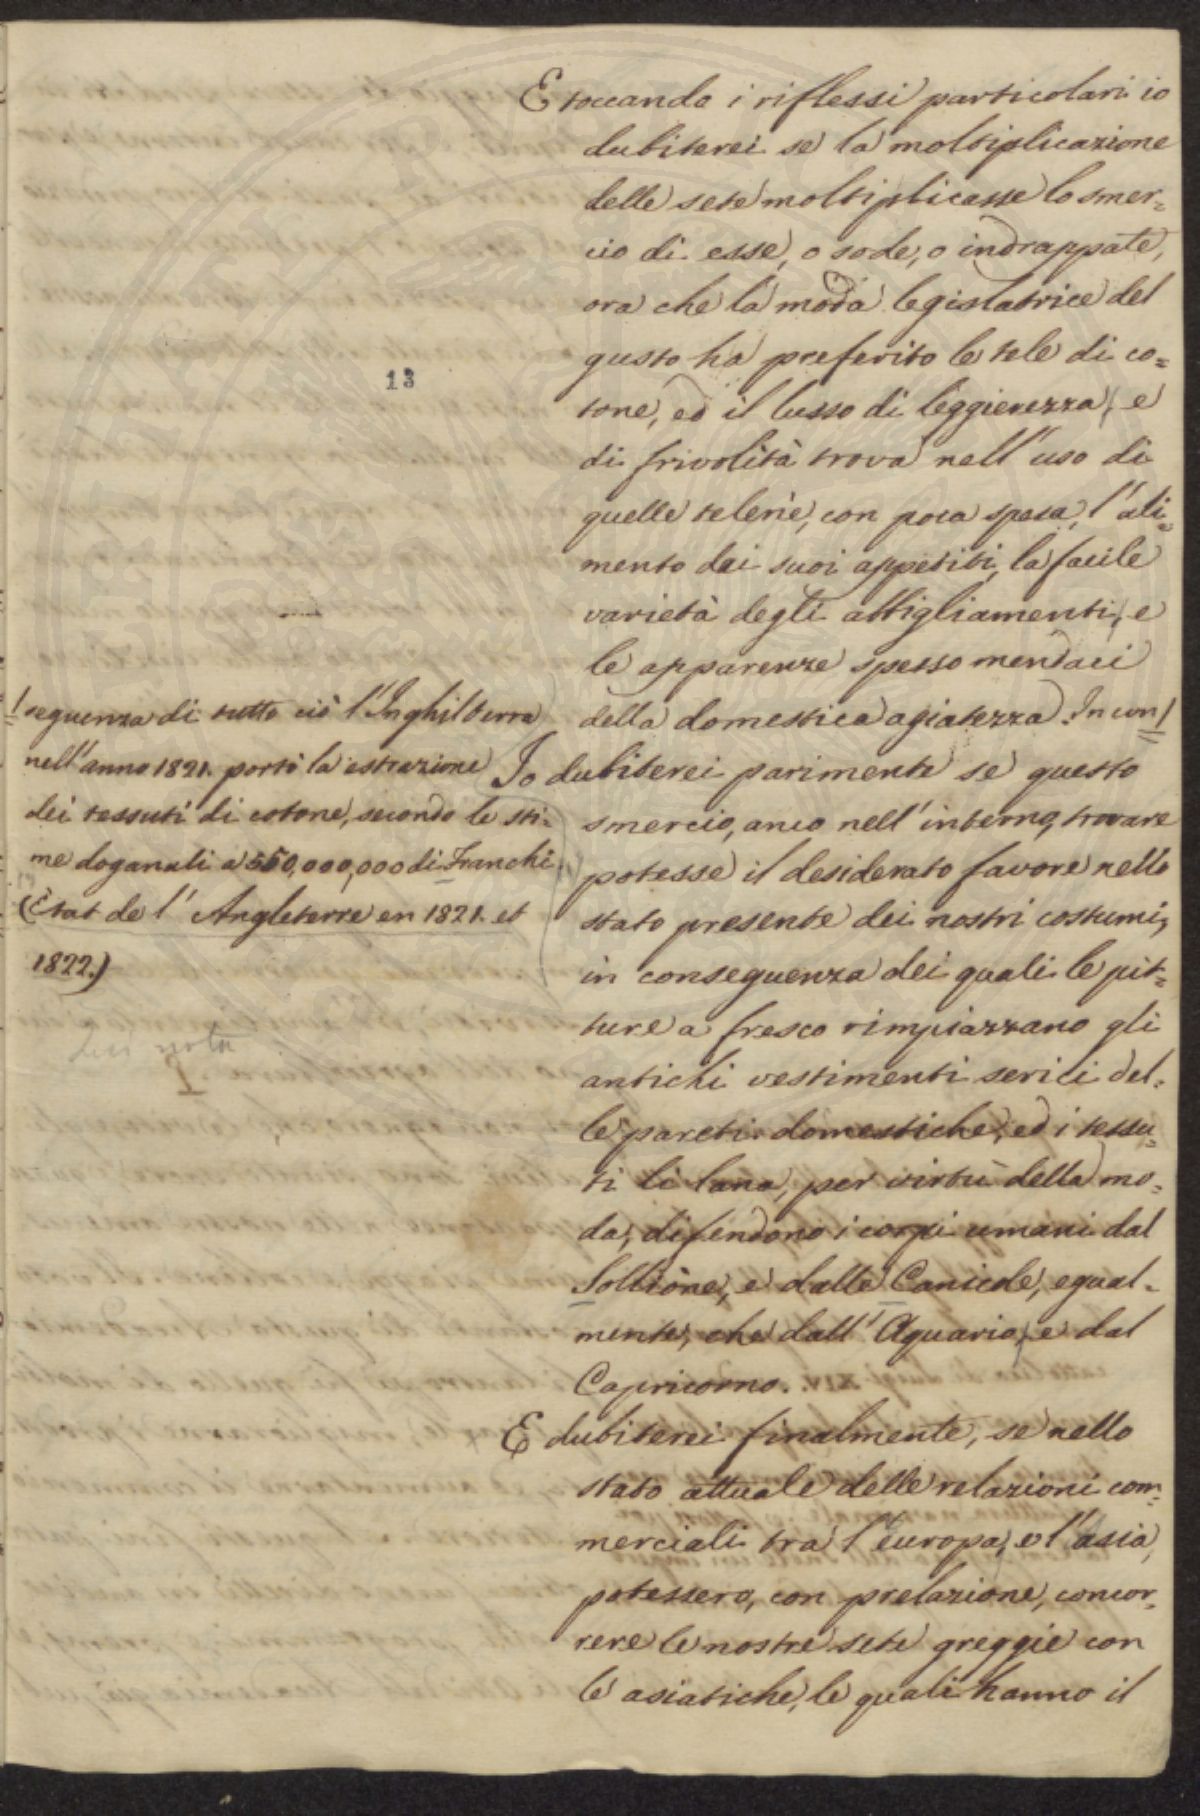 E toccando i riflessi particolari io
dubiterei se la moltiplicazione
delle sete moltiplicasse lo smer=
cio di esse, o sode, o indrappate,
ora che la moda legislatrice del
gusto ha preferito le tele di co=
tone, ed il lusso di leggierezza, e
di frivolità trova nell'uso di
quelle telerie, con poca spesa, l'ali=
mento dei suoi appetiti, la facile
varietà degli abbigliamenti, e
le apparenze spesso mendaci
della domestica agiatezza. In con/
Io dubiterei parimente se questo
smercio, anco nell'interno, trovare
potesse il desiderato favore nello
stato presente dei nostri costumi,
in conseguenza dei quali le pit=
ture a fresco rimpiazzano gli
antichi vestimenti serici del=
le pareti domestiche, ed i tessu=
ti di lana, per virtù della mo=
da, difendono i corpi umani dal
Sollione, e dalle Canicole, egual=
mente, che dall'Aquario, e dal
Capricorno.
E dubiterei finalmente, se nello
stato attuale delle relazioni com=
merciali tra l'europa, e l'asia,
potessero, con prelazione, concor=
rere le nostre sete greggie con
le asiatiche, le quali hanno il
13
/seguenza di tutto ciò l'Inghilterra
nell'anno 1821. portò la estrazione
dei tessuti di cotone, secondo le sti=
me doganali a 550,000,000 di Franchi
(Ètat de l'Angleterre en 1821. et
1822.)
nota